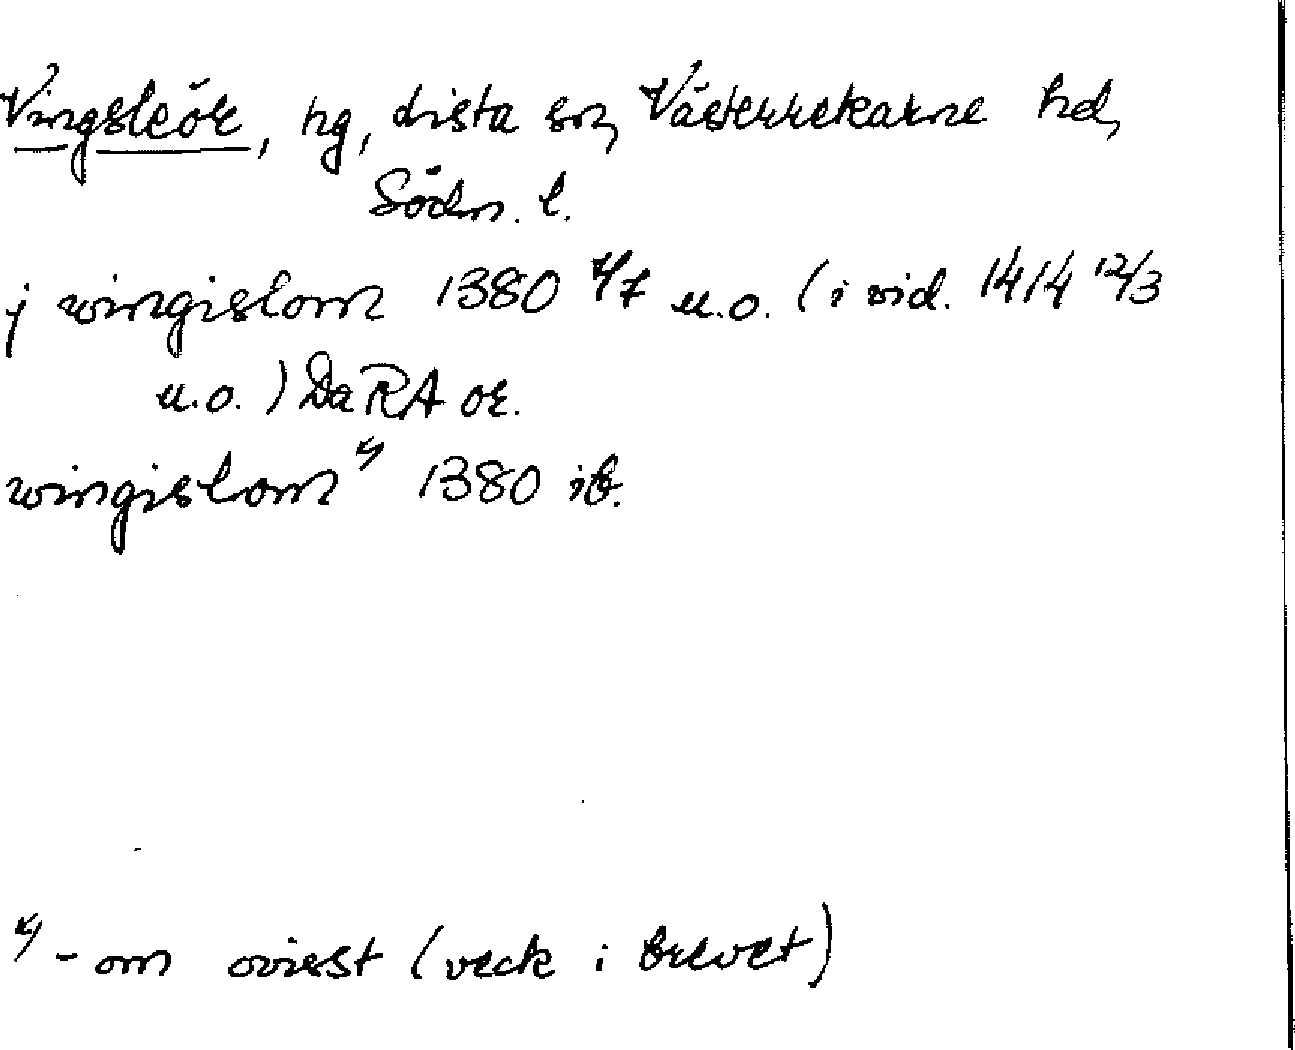 Vingsleör, hg, Lista sn, Västerrekarne hd,
Södm. l.
j wingislom 1380 4/7 u.o. (i vid. 1414 12/3
u.o.) DaRA or.
wingislom 1) 1380 ib.
1) -om ovisst (veck i brevet)